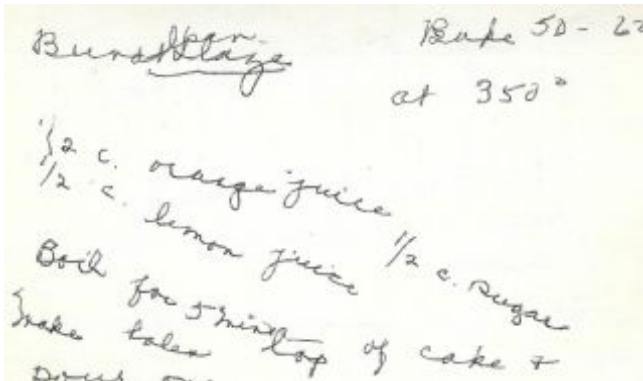 pan
Glaze
Bake 50 -
at 350°
1/2 c. orange juice
1/2 c. lemon juice 1/2 c. sugar
Boil for 5 min
make holes top of cake &